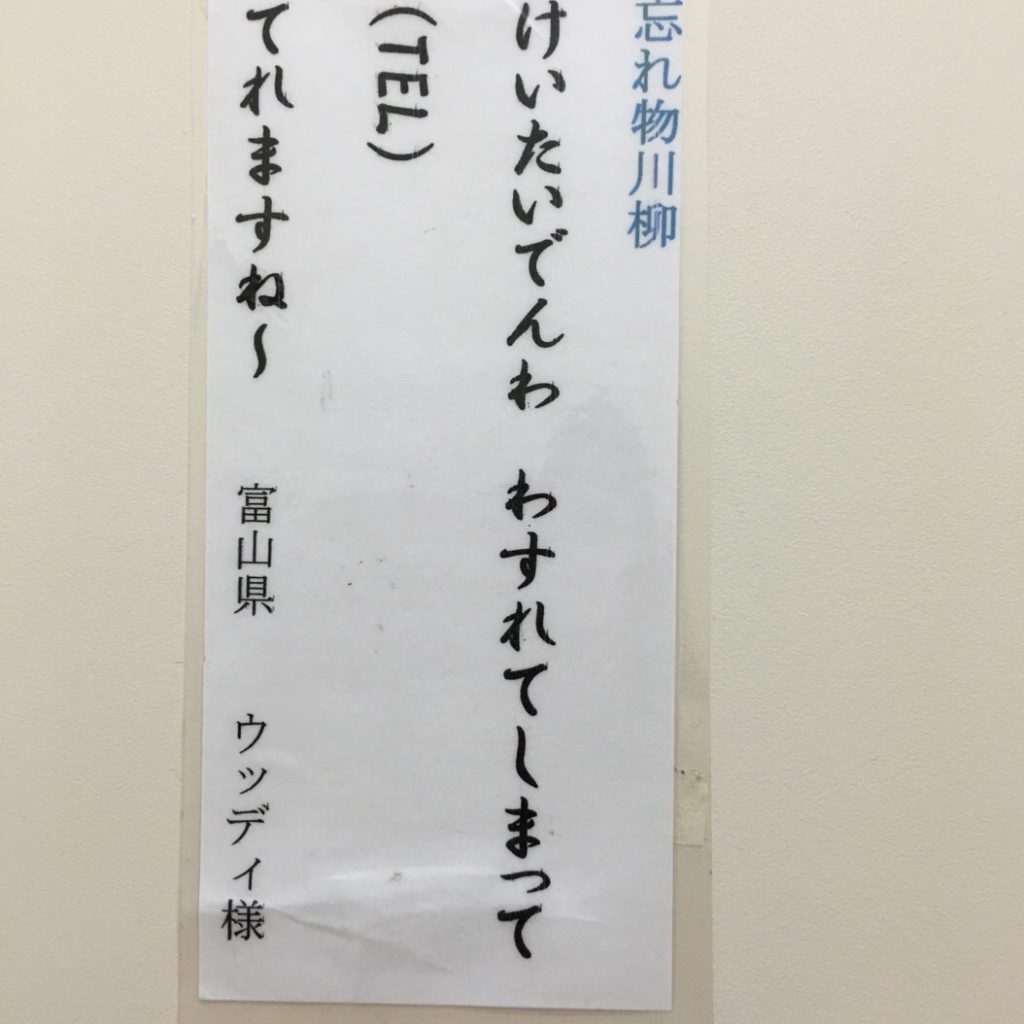 忘れ物川柳
けいたいでんわ　わすれてしまって
（TEL）
てれますね～
富山県　ウッディ様